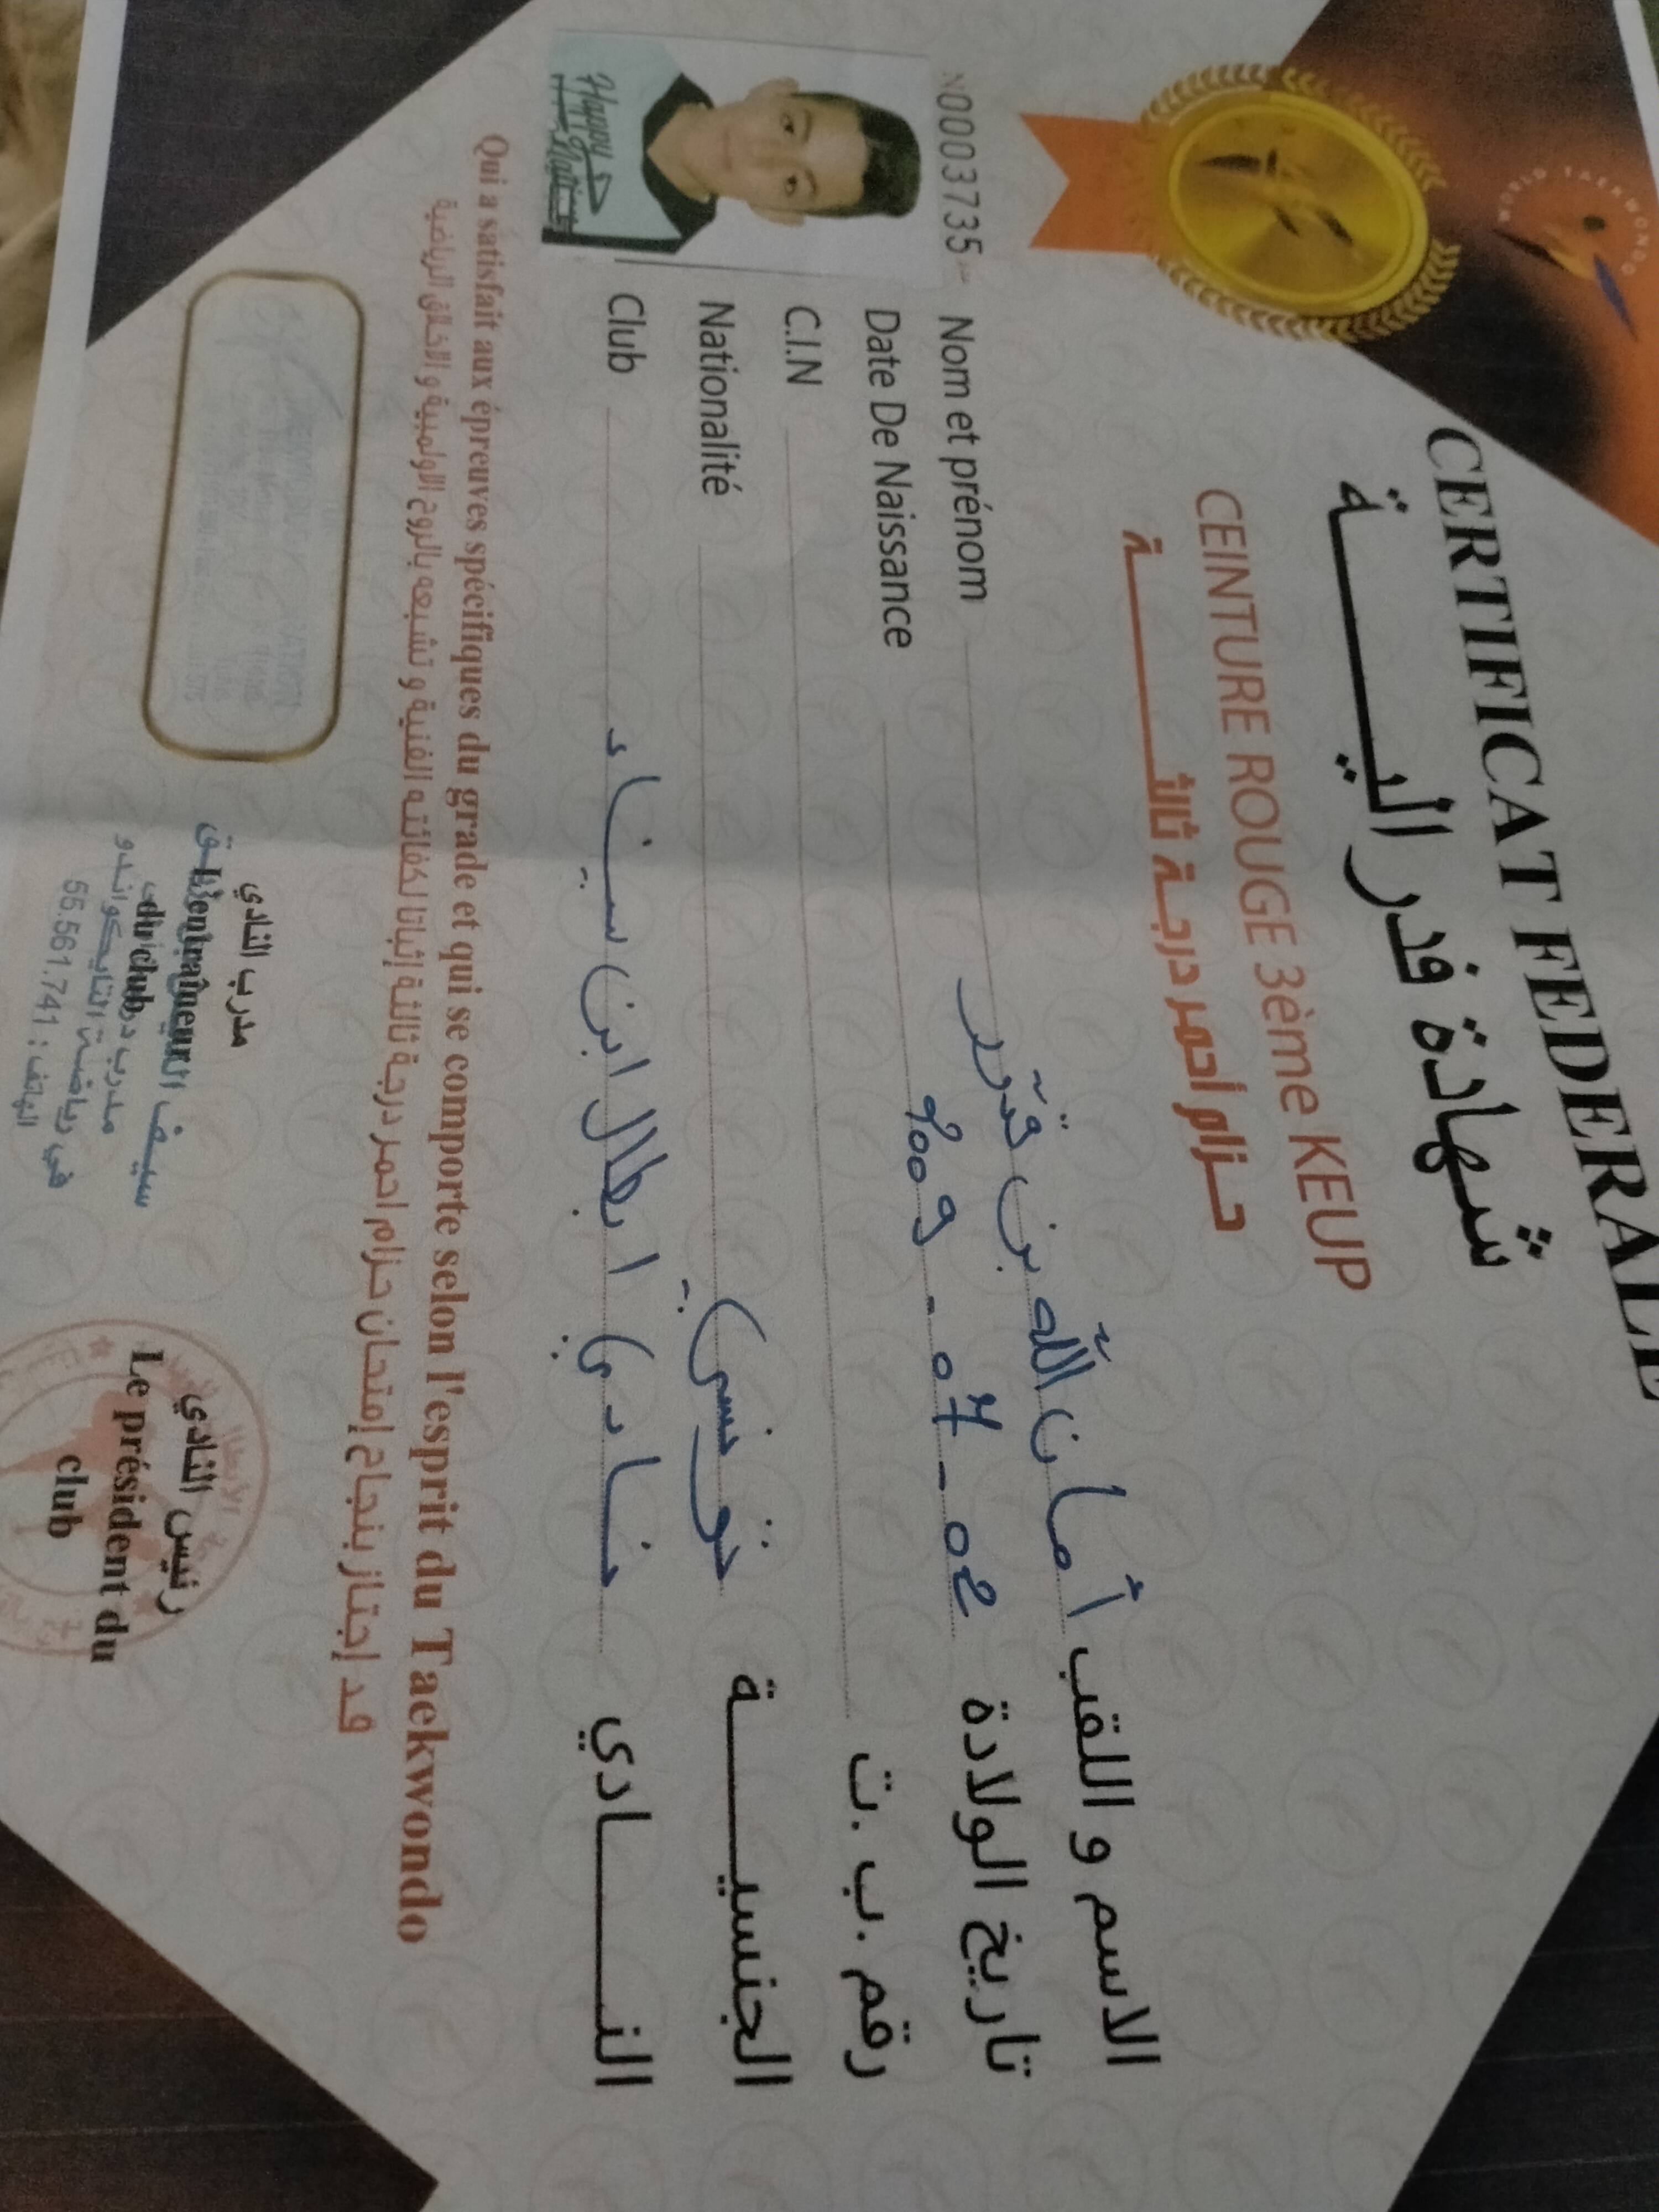 WORLD TAEKWONDO
CERTIFICAT FEDERALE
شهادة فدرالية
CEINTURE ROUGE 3ème KEUP
حزام أحمر درجة ثالثة
N0003735
Nom et prénom أمان الله بن قدّور الاسم و اللقب
Date De Naissance 2009 - 07 - 02 تاريخ الولادة
C.I.N رقم .ب .ت
Nationalité تونسي الجنسية
Club نادي ابطال ابن سيناء النادي
Happy
Qui a satisfait aux épreuves spécifiques du grade et qui se comporte selon l'esprit du Taekwondo
قد إجتاز بنجاح إمتحان حزام احمر درجة ثالثة إثباتا لكفائته الفنية و تشبعه بالروح الاولمبية و الاخلاق الرياضية
مدرب النادي
L'entraîneur
du club
سيف
مدرب درجة
في رياضة التايكواندو
الهاتف : 55.561.741
رئيس النادي
Le président du
club